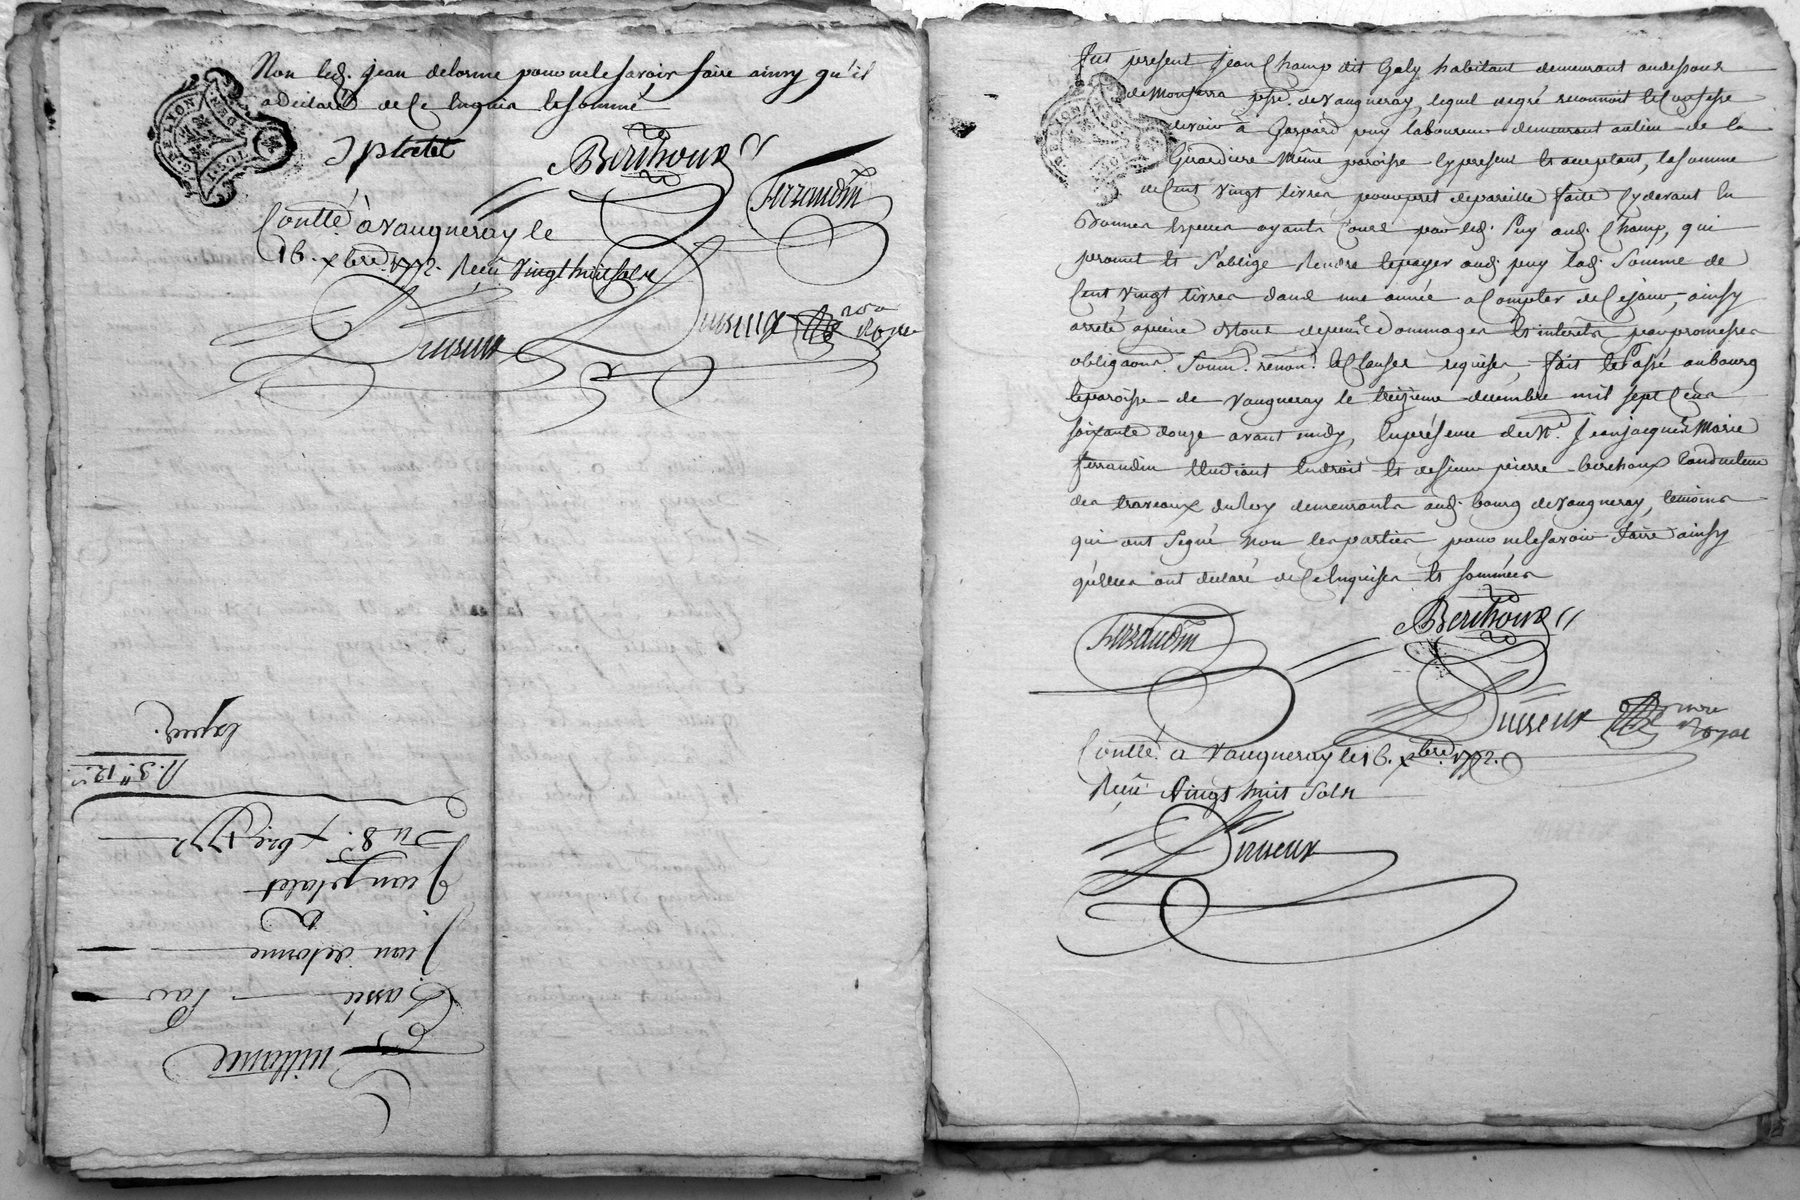 Non led. jean delorme pour ne le savoir faire ainsy qu'il
a declaré de ce enquis et sommé
J platet
Berthoux
Ferrandin
Contlé à Vaugneray le
16. xbre. 1772. Reçu Vingt huit sols
GRE LYON
Quittance
Passée par
Jean delorme
à
Jean platet
Du 8. xbre 1772
Fut present Jean Champ dit Galy habitant demeurant au dessous
de Monferra psse. de Vaugneray, lequel de gré reconnoit et confesse
devoir à Gaspard puy laboureur demeurant au lieu de la
Girardiere même paroisse cy present et acceptant, la somme
de Cent Vingt livres pour pret de pareille faite cy devant en
bonnes especes ayants Cours par led. Puy aud. Champ, qui
promet et s'oblige rendre et payer aud. puy lad. Somme de
Cent Vingt livres dans une année a Compter de Ce jour, ainsy
arreté a peine de tous depens Dommages et interets par promesses
obligaons. Soum. renon. et Clauses requises, fait et Passé au bourg
et paroisse de Vaugneray le treizieme decembre mil sept Cens
soixante douze avant midy, En présence de Jean jacques Marie
ferrandin Etudiant En droit et de sieur pierre berthoux Conducteur
des travaux du Roy demeurants aud. bourg de Vaugneray, temoins
qui ont Signé Non les parties pour ne le savoir faire ainsy
qu'elles ont declaré de Ce Enquises et sommées
Ferrandin
Berthoux
Contlé. a Vaugneray le 16. xbre. 1772.
Reçu Vingt huit Sols